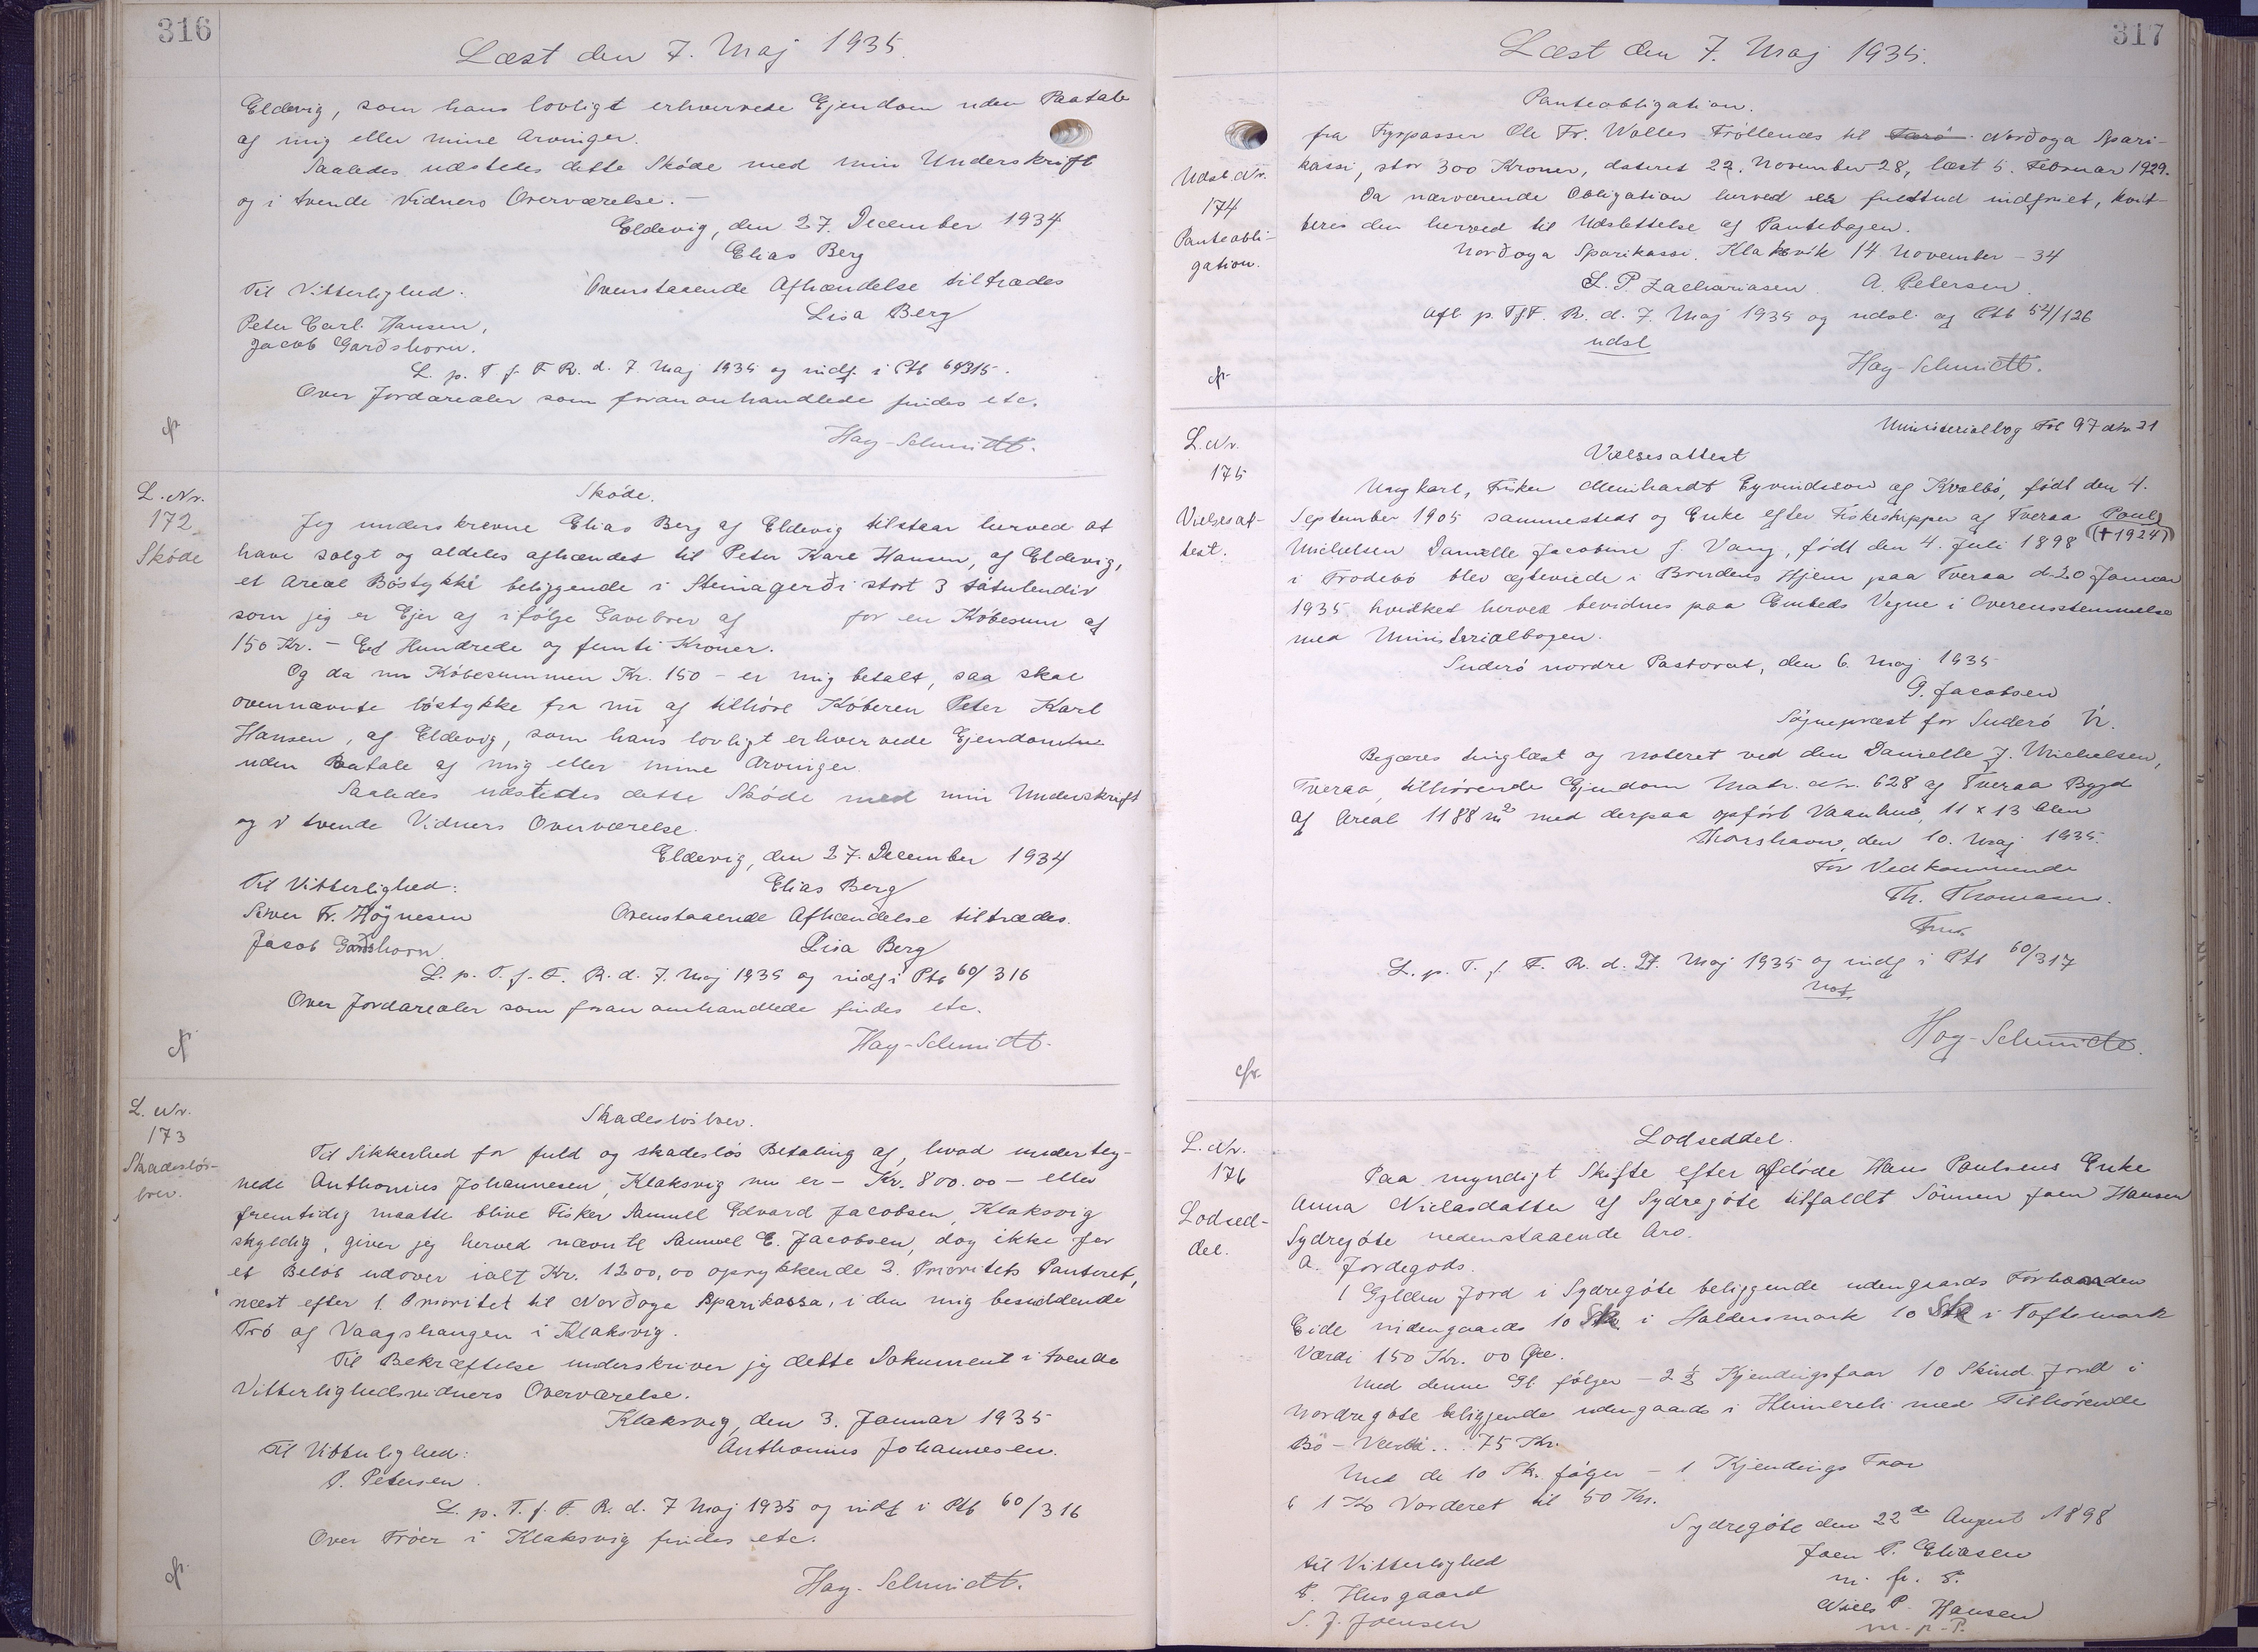 316
Læst den 7. Maj 1935.
Eldevig, som hans lovligt erhvervede Ejendom uden Paatale
af mig eller mine Arvinger.
Saaledes udstedes dette Skøde med min Underskrift
og i tvende Vidners Overværelse. -
Eldevig, den 27. December 1934
Elias Berg
Til Vitterlighed: Ovenstaaende Afhændelse tiltrædes
Peter Carl Hansen, Lisa Berg
Jacob Garðshorn.
L. p. T. f. F. R. d. 7 Maj 1935 og indf. i Ptb 60/315.
Over Jordarealer som foranomhandlede findes etc.
Hay-Schmidt.
L. Nr.
172
Skøde
Skøde.
Jeg underskrevne Elias Berg af Eldevig tilstaar herved at
have solgt og aldeles afhændet til Peter Karl Hansen, af Eldevig,
et Areal Bøstykki beliggende i Steinagerði stort 3 tátulendir
som jeg er Ejer af ifølge Gavebrev af for en Købesum af
150 Kr. - Et Hundrede og femti Kroner.
Og da nu Købesummen Kr. 150 - er mig betalt, saa skal
ovennævnte bøstykke fra nu af tilhøre Køberen Peter Karl
Hansen, af Eldevig, som hans lovligt erhvervede Ejendom
uden Paatale af mig eller mine Arvinger.
Saaledes udstedes dette Skøde med min Underskrift
og i tvende Vidners Overværelse.
Eldevig, den 27. December 1934
Til Vitterlighed: Elias Berg
Fr. Høgnesen Ovenstaaende Afhændelse tiltrædes.
Jacob Garðshorn Lisa Berg
L. p. T. f. F. R. d. 7. Maj 1935 og indf i Ptb 60/316
Over Jordarealer som foranomhandlede findes etc.
Hay-Schmidt.
L. Nr.
173
Skadesløs-
brev.
Skadesløsbrev.
Til Sikkerhed for fuld og skadesløs Betaling af, hvad underteg-
nede Anthonius Johannesen, Klaksvig nu er - Kr. 800.00 - eller
fremtidig maatte blive Fisker Samuel Edvard Jacobsen, Klaksvig
skyldig, giver jeg herved nævnte Samuel E. Jacobsen, dog ikke for
et Beløb udover ialt Kr. 1200,00 oprykkende 2. Prioritets Panteret,
næst efter 1. Prioritet til Norðoya Sparikassa, i den mig
Trø af Vaagshaugen i Klaksvig.
Til Bekræftelse underskriver jeg dette Dokument i tvende
Vitterlighedsvidners Overværelse.
Klaksvig, den 3. Januar 1935
Til Vitterlighed: Anthonius Johannesen.
P. Petersen.
L. p. T. f. F. R. d. 7 Maj 1935 og indf i Ptb 60/316
Over Trøer i Klaksvig findes etc.
Hay-Schmidt.
317
Læst den 7. Maj 1935.
Udsl. Nr.
174
Panteobli-
gation.
Panteobligation.
fra Fyrpasser Ole Fr. Wolles Trøllenæs til Norðoya Spari-
kassi, stor 300 Kroner, dateret 22. November 28, læst 5. Februar 1929.
Da nærværende Obligation herved er fuldtud indfriet, kvit-
teres den herved til Udslettelse af Pantebogen.
Norðoya Sparikassi. Klaksvík 14 November - 34
L. P. Zachariasen. A. Petersen.
Afl p. T f F. R. d. 7. Maj 1935 og udsl. af Ptb 54/126
udsl
Hay-Schmidt.
L. Nr.
175
Vielsesat-
test.
Ministerialbog Fol 97 Nr 21
Vielsesattest
Ungkarl, Fisker Meinhardt Eyvindsson af Kvalbø, født den 4.
September 1905 sammesteds og Enke efter Fiskeskipper af Tveraa Poul
Michelsen Danielle Jacobine f. Vang, født den 4. Juli 1898 († 1924)
i Frodebø blev ægteviede i Brudens Hjem paa Tveraa d. 20 Januar
1935 hvilket herved bevidnes paa Embeds Vegne i Overensstemmelse
med Ministerialbogen.
Suderø nordre Pastorat, den 6. Maj 1935
G. Jacobsen
Sognepræst for Suderø N.
Begæres tinglæst og noteret ved den Danielle J. Michelsen,
Tveraa tilhørende Ejendom Matr. Nr. 628 af Tveraa Bygd
af Areal 1188 m² med derpaa opført Vaanhus, 11 x 13 Alen
Thorshavn, den 10. Maj 1935.
For Vedkommende
Th. Thomasen.
L. p. T. f. F. R. d. 27. Maj 1935 og indf i Ptb 60/317
Not.
Hay-Schmidt.
L. Nr.
176
Lodsed-
del.
Lodseddel.
Paa myndigt Skifte efter afdøde Hans Poulsens Enke
Anna Niclasdatter af Sydregøte tilfaldt Sønnen Joen Hansen
Sydregøte nedenstaaende Arv.
A. Jordegods.
1 Gylden Jord i Sydregøte beliggende udengaards
Eide indengaards 10 Sk i Haldersmark 10 Sk i Toftemark
Værdi 150 Kr. 00 Øre.
Med denne Gl følger - 2 1/2 Kjendingsfaar 10 Skind Jord i
Nordregøte beliggende udengaards i Heimereli med Tilhørende
Bø - Værdi... 75 Kr.
Med de 10 Sk. følger - 1 Kjendings Faar
6 1 Ko Vurderet til 50 Kr.
Sydregøte den 22de August 1898
til Vitterlighed Joen P. Eliasen
P. Husgaard m. fr. P.
S. J. Joensen Niels P. Hansen
m. p. P.